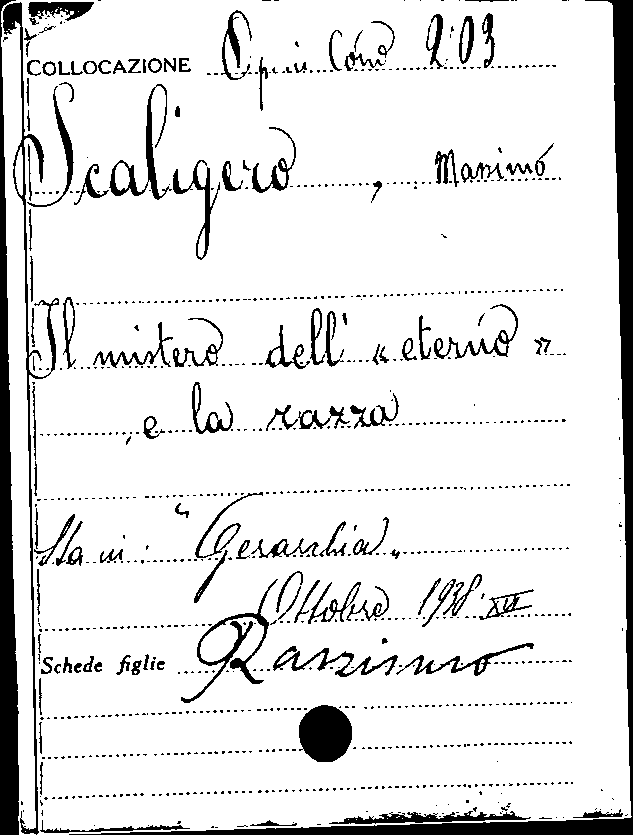 COLLOCAZIONE Opus Cond 203
Scaligero, Massimo
Il mistero dell' « eterno »
e la razza
Sta in: "Gerarchia"
Ottobre 1938. XVI
Schede figlie Razzismo